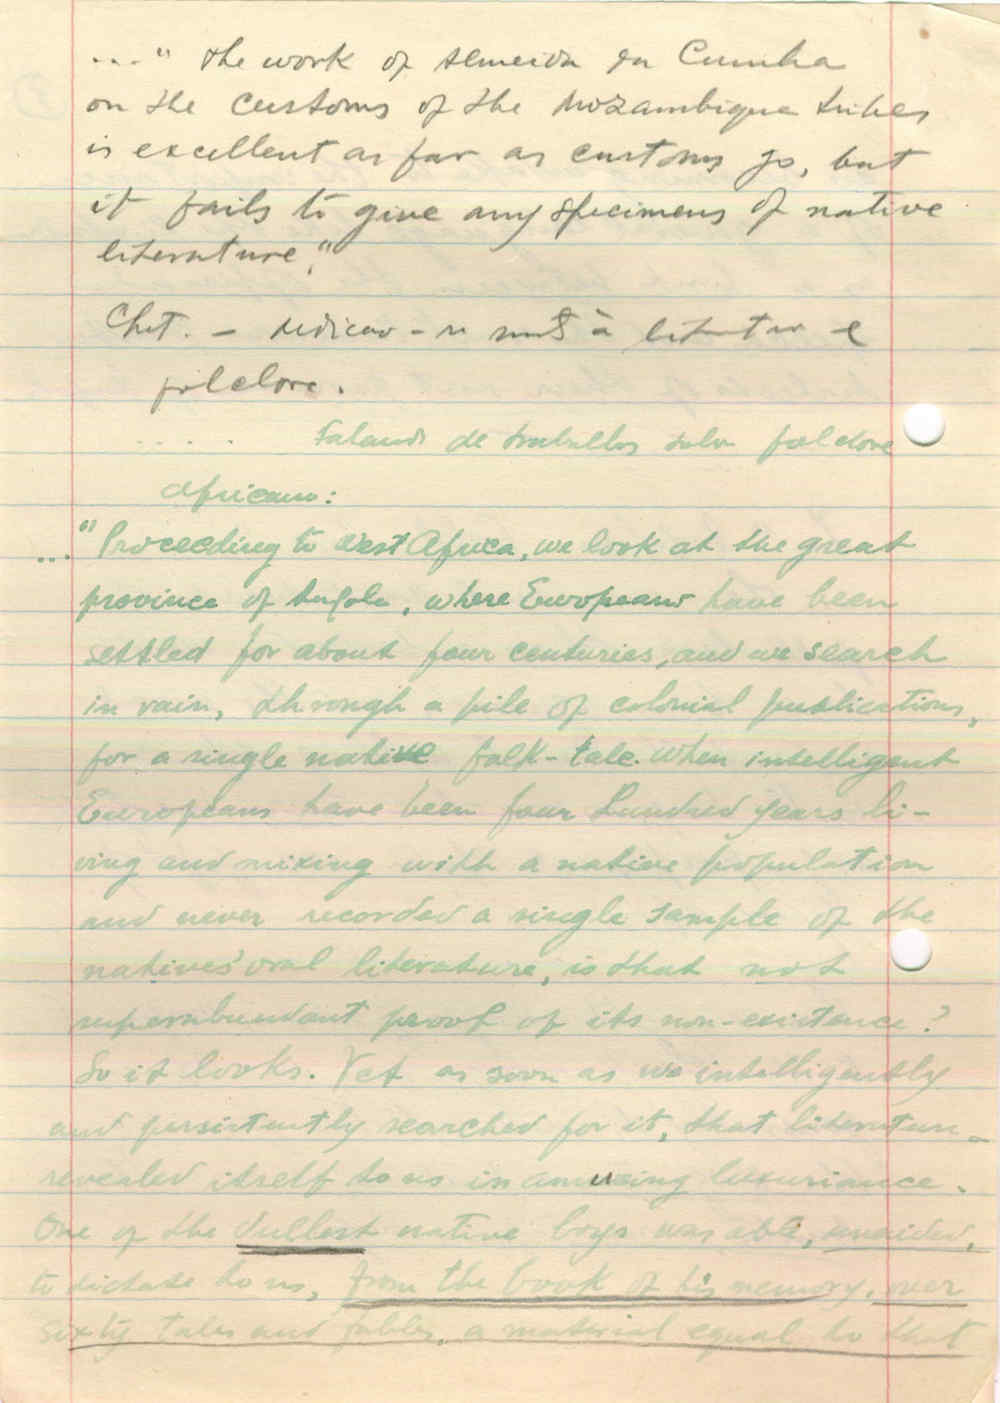 ..." the work of Almeida da Cunha
on the customs of the Mozambique tribes
is excellent as far as customs go, but
it fails to give any specimens of native
literature."
Chat. - dedicar-se mto à literatur e
folclore.
..... Falando de trabalhos sobre folclore
africano:
..."Proceeding to West Africa, we look at the great
province of Angola, where Europeans have been
settled for about four centuries, and we search
in vain, through a pile of colonial publications,
for a single native folk-tale. When intelligent
Europeans have been four hundred years li-
ving and mixing with a native population
and never recorded a single sample of the
natives' oral literature, is that not
superabundant proof of its non-existence?
So it looks. Yet as soon as we intelligently
and persistently searched for it, that literature
revealed itself to us in amusing luxuriance.
One of the dullest native boys was able, unaided,
to dictate to us, from the book of his memory, over
sixty tales and fables, a material equal to that